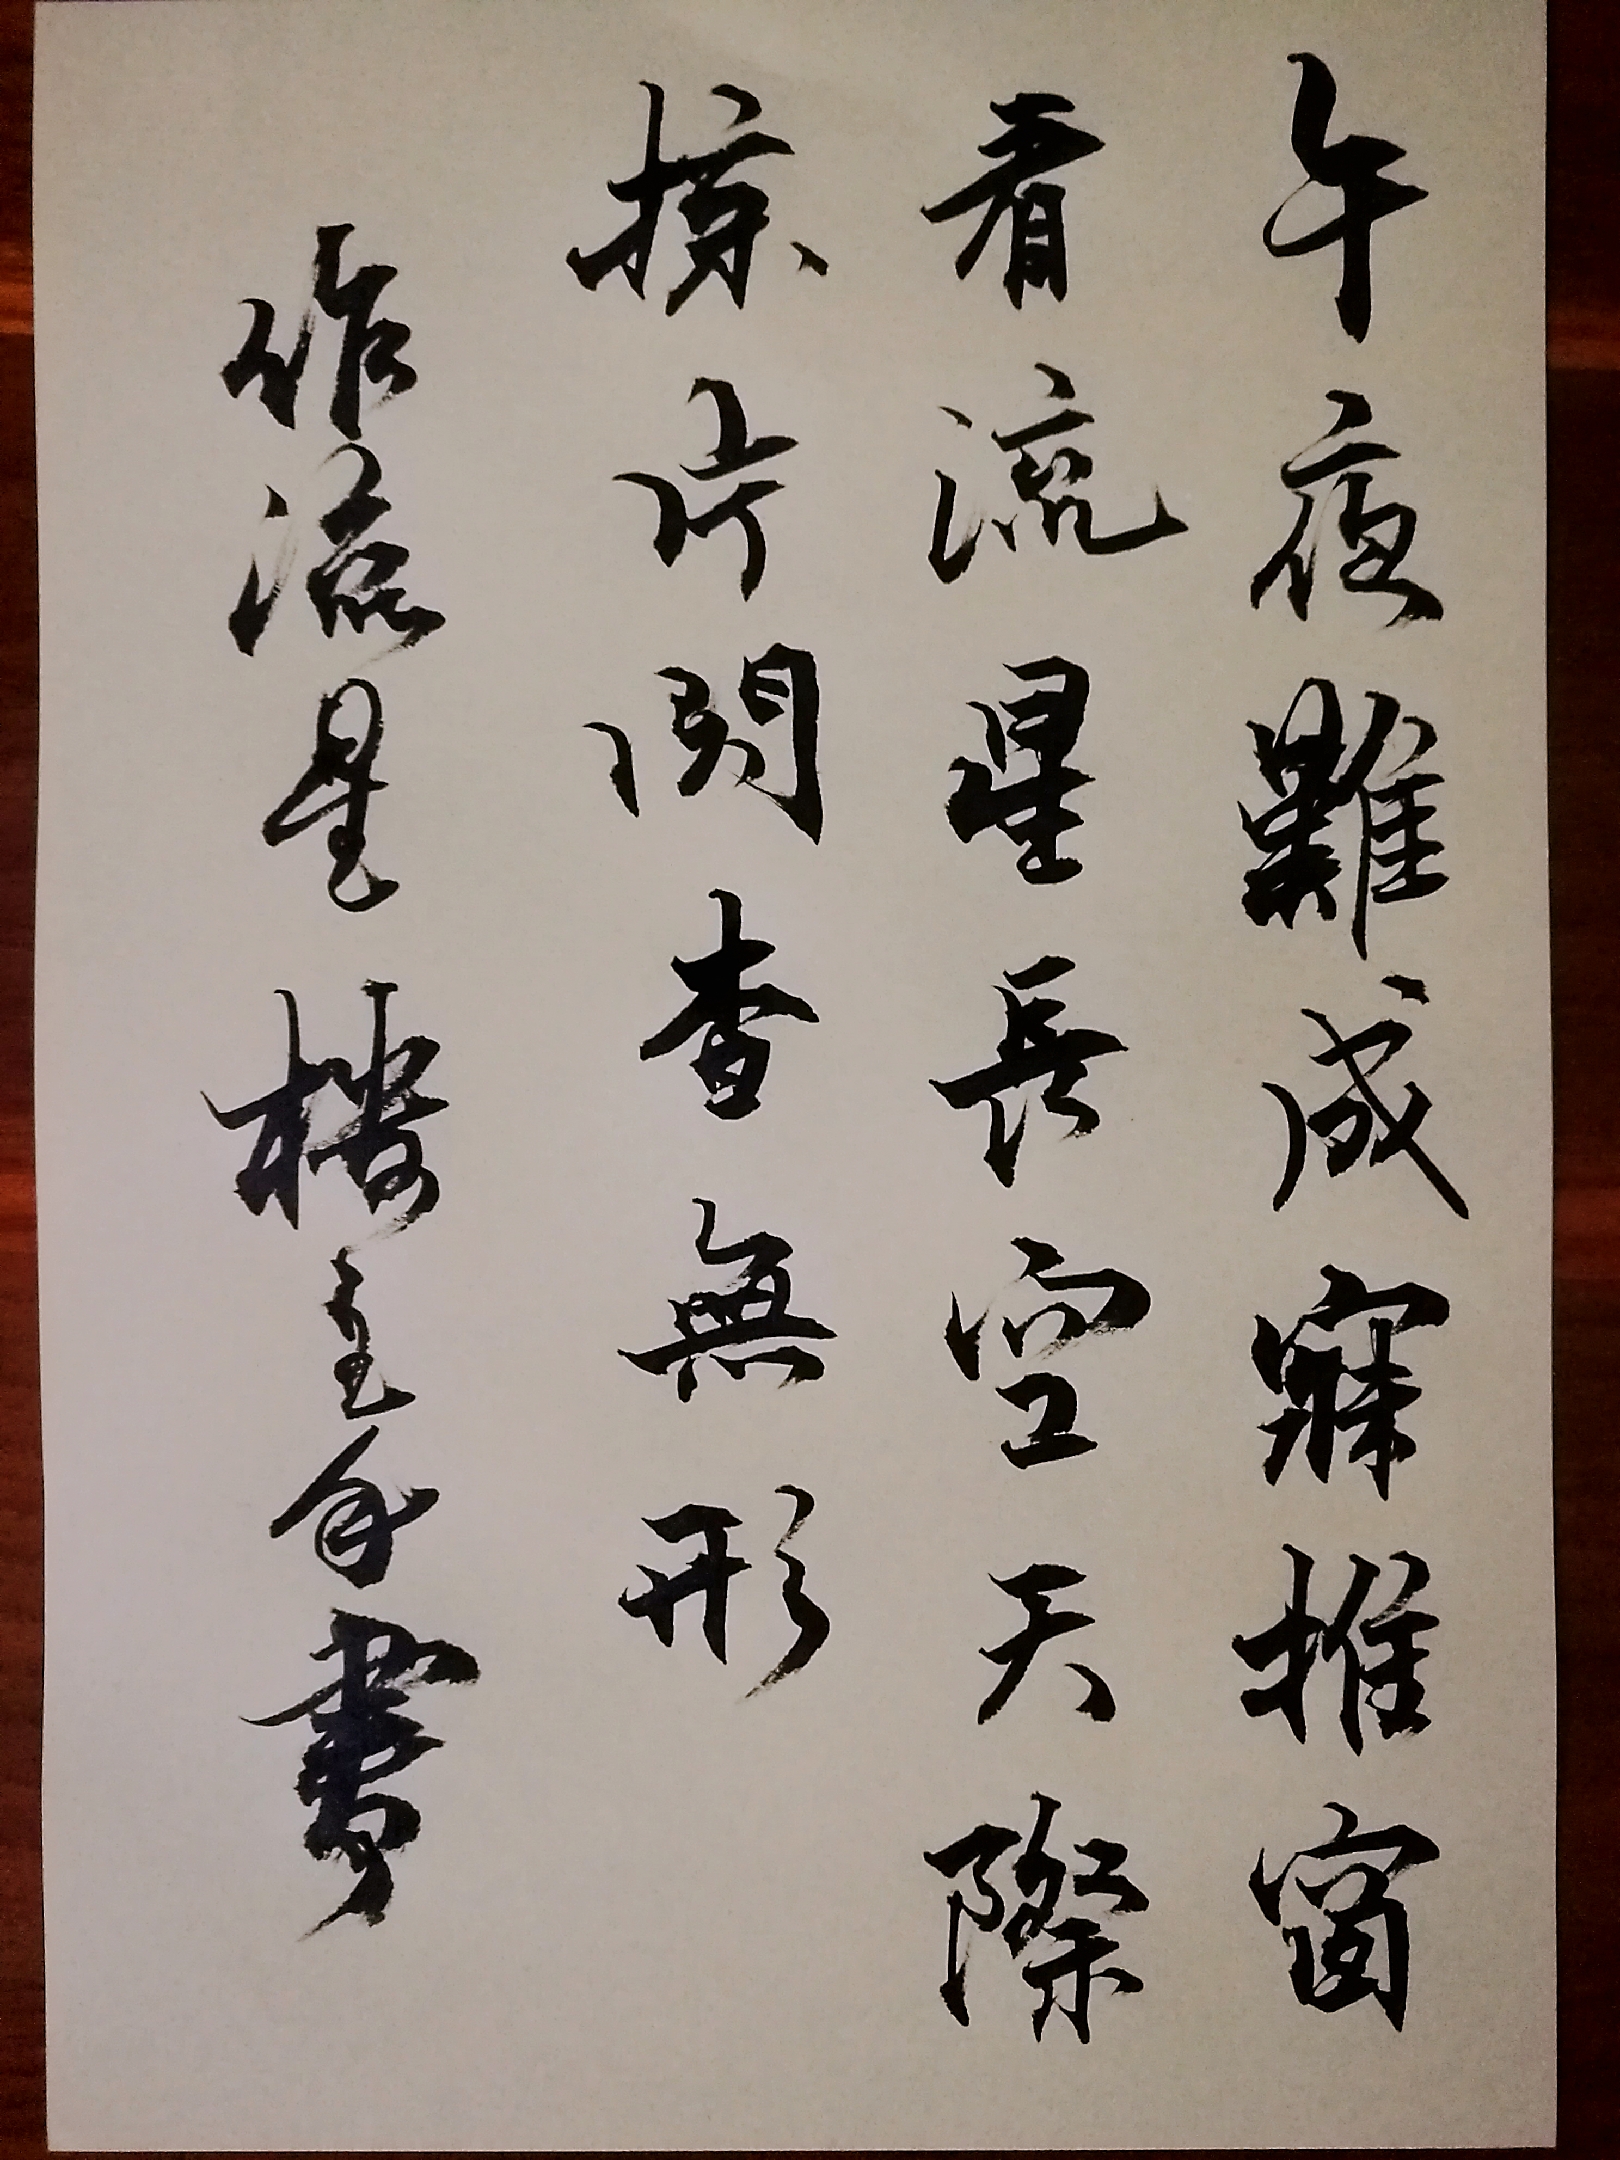 午夜難成寐推窗
看流星長空天際
掠片閃杳無形
流星樓主手書